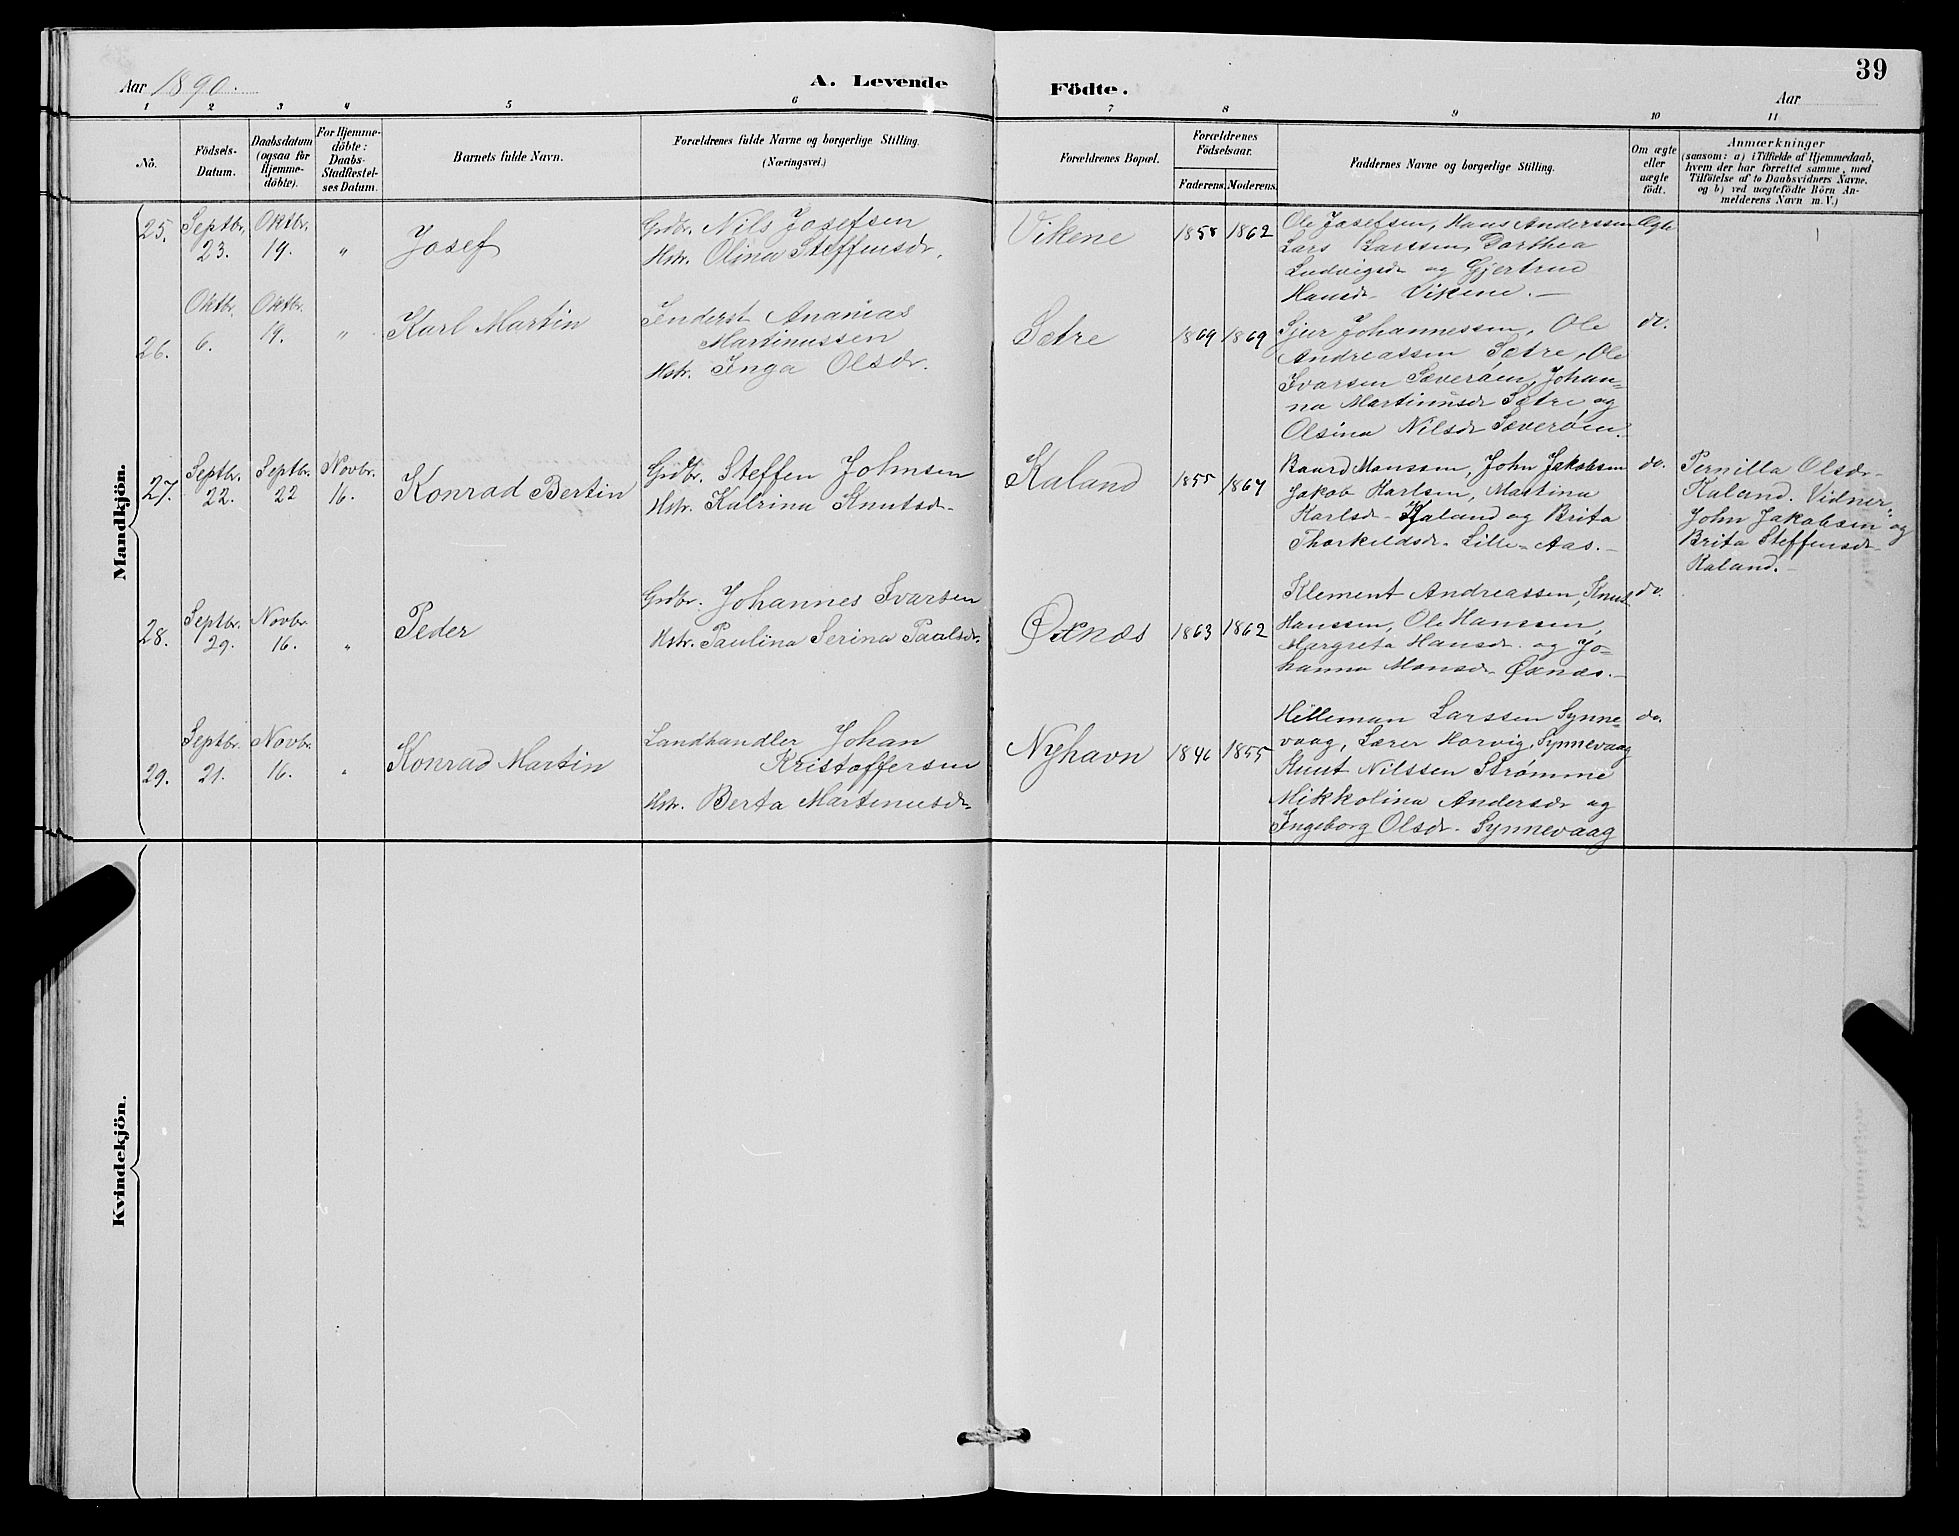 39
Aar 1890.
A. Levende Födte.
Aar
1 2 3 4 5 6 7 8 9 10 11
No.
Födsels-
Datum.
Daabsdatum
(ogsaa for
Hjemme-
döbte).
For Hjemme-
döbte:
Daabs-
Stadfæstel-
ses Datum.
Barnets fulde Navn.
Forældrenes fulde Navne og borgerlige Stilling.
(Næringsvei.)
Forældrenes Bopæl.
Forældrenes
Födselsaar.
Faderens. Moderens.
Faddernes Navne og borgerlige Stilling.
Om ægte
eller
uægte
födt.
Anmærkninger
(saasom: a) i Tilfælde af Hjemmedaab,
hvem der har forrettet samme, med
Tilföielse af to Daabsvidners Navne,
og b) ved uægtefödte Börn An-
melderens Navn m. V.)
Mandkjön.
25.
Septbr.
23.
Oktbr.
19.
"
Josef
Grdbr. Nils Josefsen
Hstr. Olina Steffensdr.
Vikene
1858 1862
Ole Josefsen, Hans Anderssen
Lars Larssen, Dorthea
Ludvigsdr og Gjertrud
Hansdr Vikene.
Ægte
26.
Oktbr.
6.
Oktbr.
19.
"
Karl Martin
Inderst Ananias
Martinussen
Hstr. Inga Olsdr.
Sætre
1869 1869
Sjur Johannessen, Ole
Andreassen Sætre, Ole
Ivarsen Sæveröen, Johan-
na Martinusdr Sætre og
Olsina Nilsdr Sæveröen.
do.
27.
Septbr.
22.
Septbr.
22
Novbr.
16.
Konrad Bertin
Grdbr. Steffen Johnsen
Hstr. Katrina Knutsdr.
Kaland
1855 1867
Baard Monssen, John Jakobsen
Jakob Karlsen, Martina
Karlsdr Kaland og Brita
Thorkildsdr. Lille-Aas.
do.
Pernilla Olsdr
Kaland. Vidner:
John Jakobsen og
Brita Steffensdr
Kaland.
28.
Septbr.
29.
Novbr.
16.
"
Peder
Grdbr. Johannes Ivarsen
Hstr. Paulina Serina Paalsdr.
Øxnæs
1863 1862
Klement Andreassen, Knut
Hanssen, Ole Hanssen,
Margreta Hansdr. og Jo-
hanna Monsdr Øxnæs.
do.
29.
Septbr.
21.
Novbr.
16.
"
Konrad Martin
Landhandler Johan
Kristoffersen
Hstr. Berta Martinusdr
Nyhavn
1846 1855
Hilleman Larssen Synne-
vaag, Lærer Horvig, Synnevaag
Knut Nilssen Strømme
Mikkolina Andersdr og
Ingeborg Olsdr. Synnevaag
do.
Kvindekjön.